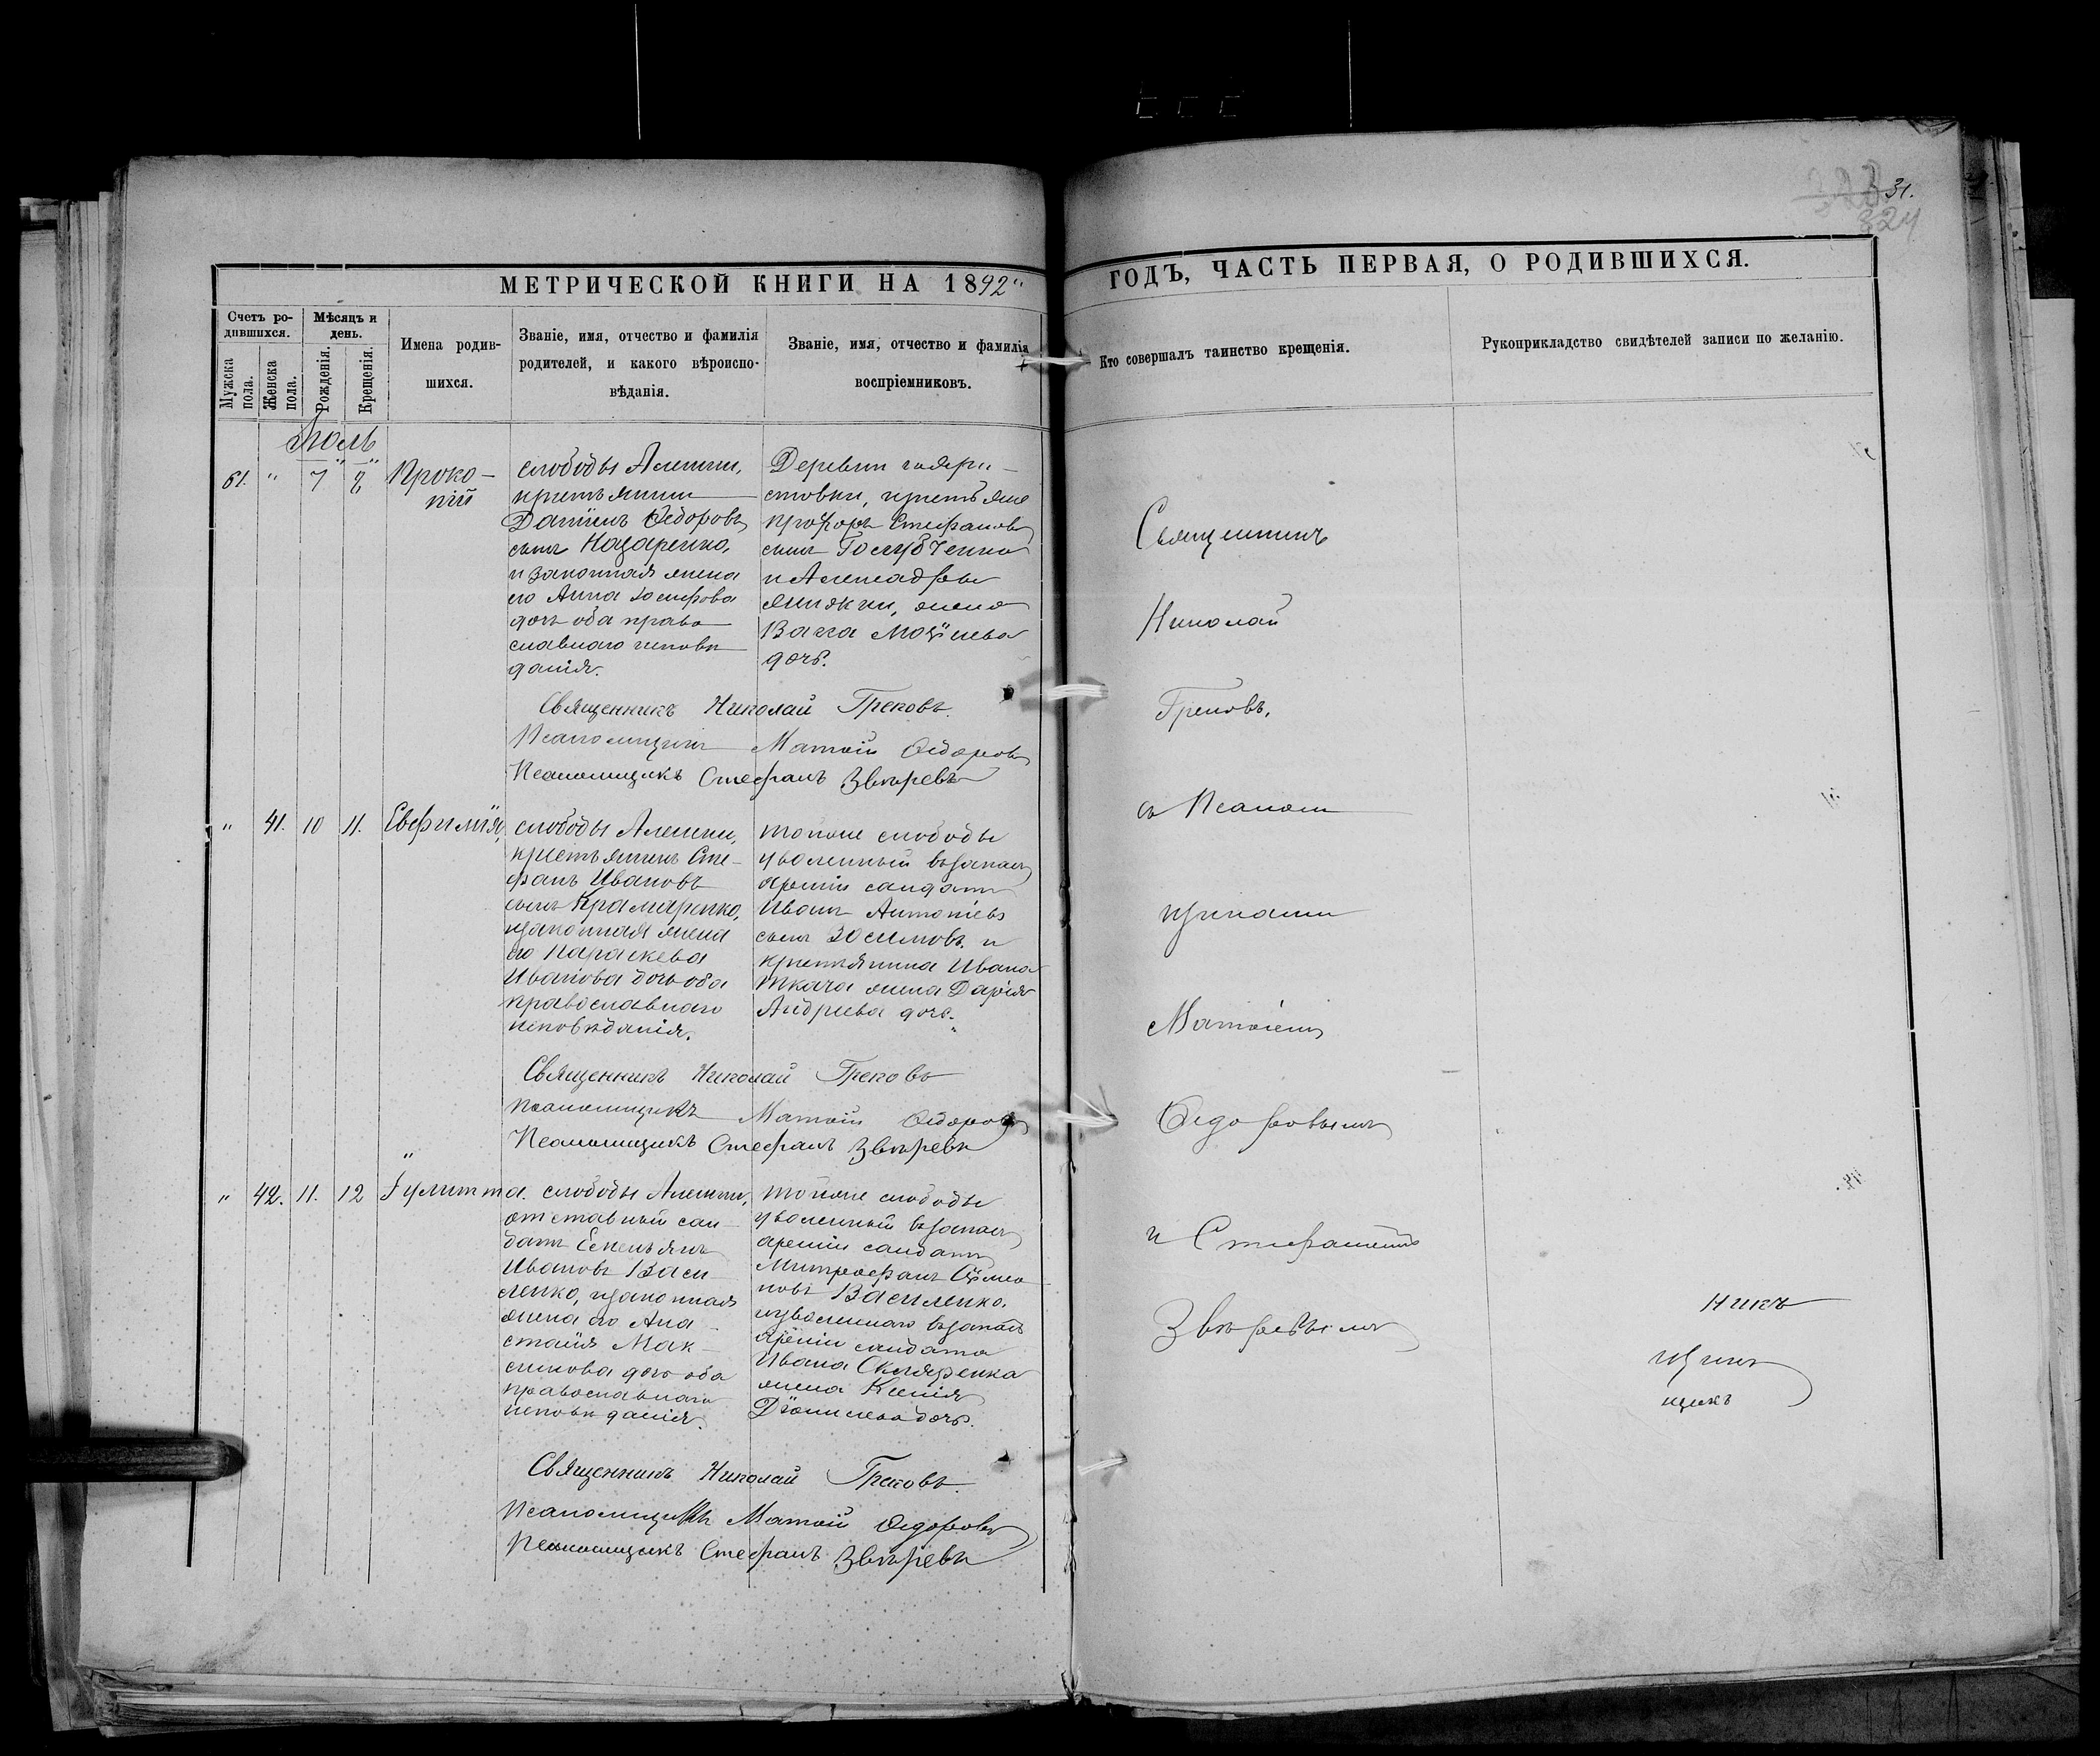 31.
324
МЕТРИЧЕСКОЙ КНИГИ НА 1892
ГОДЪ, ЧАСТЬ ПЕРВАЯ, О РОДИВШИХСЯ.
Счетъ ро-
дившихся.
Мужска
пола.
Женска
пола.
Мѣсяцъ и
день.
Рожденія.
Крещенія.
Имена родив-
шихся.
Званіе, имя, отчество и фамилія
родителей, и какого вѣроиспо-
вѣданія.
Званіе, имя, отчество и фамилія
воспріемниковъ.
Кто совершалъ таинство крещенія.
Рукоприкладство свидѣтелей записи по желанію.
Іюль
61. " 7 8 Проко-
пій
слободы Алешки,
крестьянинъ
Даніилъ Ѳедоровъ
сынъ Назаренко,
и законная жена
его Анна Іосифова
дочь оба право
славнаго исповѣ
данія.
Деревни
стовки, крестьяне
Прохоръ Стефановъ
сынъ Голубченко
и Александры
жена
Васса Моѵсеева
дочь.
Священникъ Николай Грековъ.
Псаломщикъ Матѳій Ѳедоровъ
Псаломщикъ Стефанъ Звѣревъ
" 41. 10 11. Евфимія,
слободы Алешки,
крестьянинъ Сте-
фанъ Ивановъ
сынъ Крамаренко,
и законная жена
его Параскева
Иванова дочь оба
православнаго
исповѣданія.
тойже слободы
уволенный въ запасъ
арміи солдатъ
Иванъ Антоніевъ
сынъ Зосимовъ и
крестьянина Ивана
Ткача жена Дарія
Андреева дочь.
Священникъ Николай Грековъ
Псаломщикъ Матѳій Ѳедоровъ
Псаломщикъ Стефанъ Звѣревъ
" 42. 11. 12 Іулитта.
слободы Алешки,
отставный сол
датъ Емельянъ
Ивановъ Васи
ленко, и законная
жена его Ана
стасія Мак
симова дочь оба
православнаго
исповѣданія.
тойже слободы
уволенный въ запасъ
арміи солдатъ
Митрофанъ Сѵмео
новъ Василенко,
и уволеннаго въ запасъ
арміи солдата
Ивана Скляренка
жена Ксенія
Діонисіева дочь.
Священникъ Николай Грековъ.
Псаломщикъ Матѳій Ѳедоровъ
Псаломщикъ Стефанъ Звѣревъ
Священникъ
Николай
Грековъ,
съ Псалом
щиками
Матѳіемъ
Ѳедоровымъ
и Стефаномъ
Звѣревымъ
никъ
щикъ